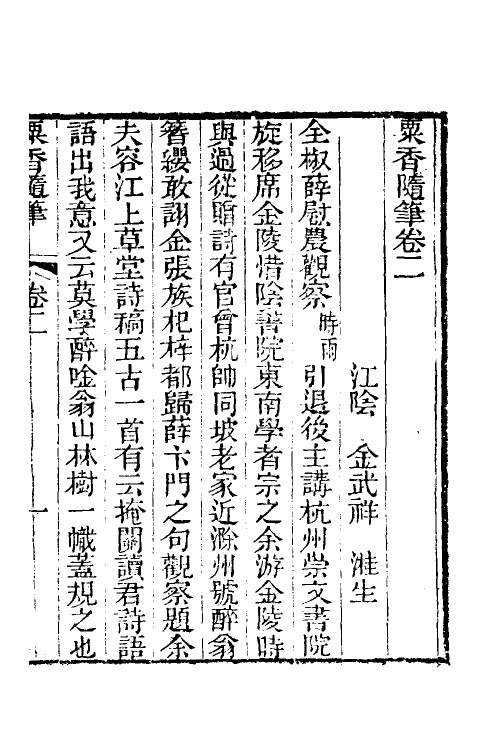 粟香隨筆卷二
江陰　金武祥　溎生
全椒薛慰農觀察時雨引退後主講杭州崇文書院
旋移席金陵惜陰書院東南學者宗之余游金陵時
與過從贈詩有官曾杭帥同坡老家近滁州號醉翁
簪纓敢詡金張族杞梓都歸薛卞門之句觀察題余
夫容江上草堂詩稿五古一首有云掩關讀君詩語
語出我意又云莫學醉唫翁山林樹一幟蓋規之也
粟香隨筆　卷二　一